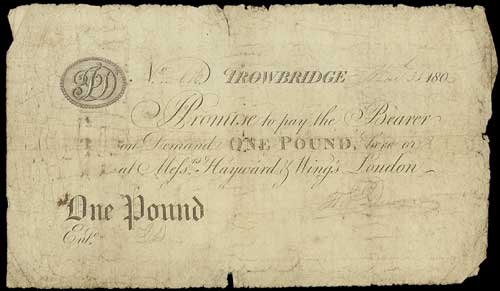 No. TROWBRIDGE 180
I Promise to pay the Bearer
on Demand ONE POUND, here or
at Messrs. Hayward & Wing's London
One Pound
Entd.